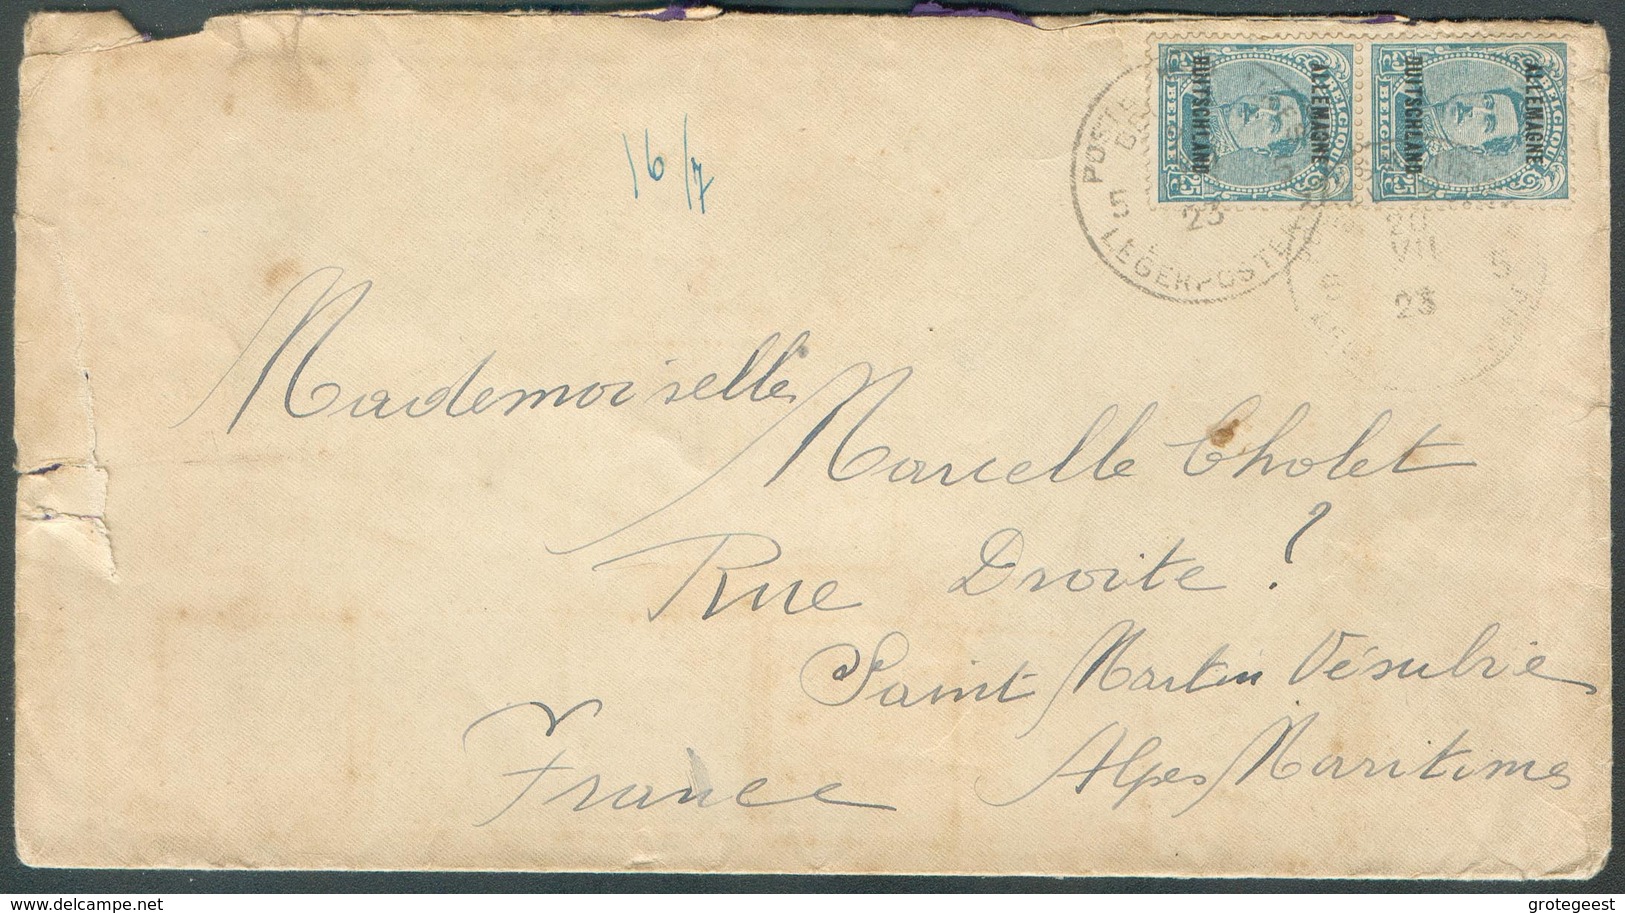 16/7
BELGIQUE
ALLEMAGNE
DUITSCHLAND
BELGIE
25
BELGIQUE
ALLEMAGNE
DUITSCHLAND
BELGIE
25
POSTE
5
23
LEGERPOSTERIJ
20
VII
23
5
5
Mademoiselle
Marcelle Cholet
Rue Droite ?
Saint Martin Vésubie
Alpes Maritimes
France
delcampe.net
grotegeest